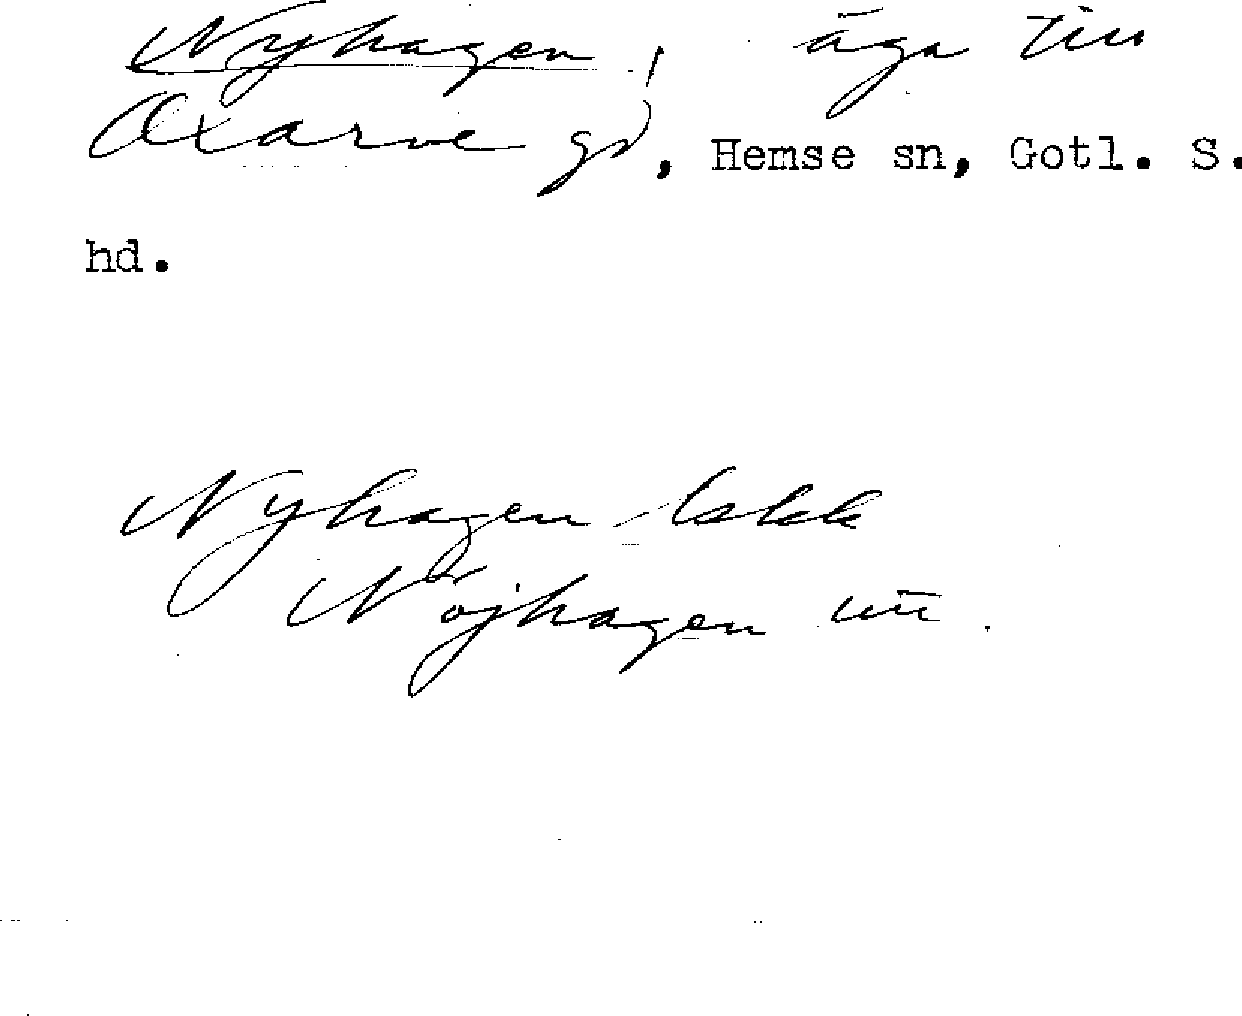 Nyhagen, äga till
Oxarve gd, Hemse sn, Gotl. S.
hd.
Nyhagen - lskk
Nöjhagen utt.